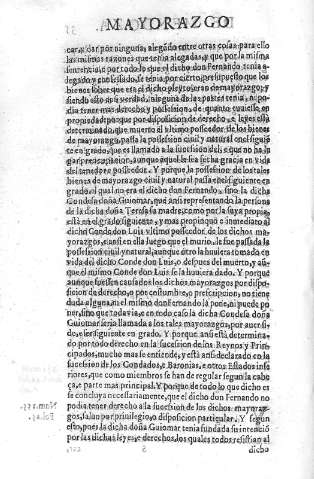 MAYORAZGO
car, y dar por ninguna, alegado entre otras cosas para ello
las mismas razones que tenia alegadas, y que por la misma
sentencia, e por todo lo que el dicho don Fernando tenia a-
legado y confessado, se tenia por cierto, presupuesto que los
bienes sobre que era el dicho pleyto, eran de mayorazgo: y
siendo esto assi verdad, ninguna de las partes tenia, ni po-
dia tener mas derechos y possession, de quanto quanto en
propiedad: porque por disposicion de derecho, e leyes esta
determinado, que muerto el ultimo posseedor de los bienes
de mayorazgo, passa la possession civil y natural en el siguiẽ
te en grado, que es llamado a la sucession del: e que no ha lu
gar prescripcion, aunque aquel le sea fecha gracia en vida
del tenedor e posseedor. Y porque la possession de los tales
bienes de mayorazgo civil y natural passa en el siguiente en
grado, el qual no era el dicho don Fernando, sino la dicha
Condesa doña Guiomar, que ansi representando la persona
de la dicha doña Teresa su madre, como por la suya propia,
està en el grado siguiente, y mas propinquo e inmediato al
dicho Conde don Luis ultimo posseedor de los dichos ma-
yorazgos, e ansi en el dia luego que el murio, le fue passada la
possession civil y natural, aunque otro la huuiera tomado en
vida del dicho Conde don Luis, o despues del muerto, y aũ-
que el mismo Conde don Luis se la huuiera dado. Y porque
aunque fuessen causados los dichos mayorazgos por dispo-
sicion de derecho, o por costumbre, o prescripcion, no tiene
duda alguna, ni el mismo don Fernando la pone, ni puede po
ner, sino que todavia, e en todo caso la dicha Condesa doña
Guiomar seria llamada a los tales mayorazgos, por auer si-
do, e ser siguiente en grado. Y porque ansi està determina-
do por todo derecho en la sucession de los Reynos y Prin-
cipados, mucho mas se entiende, y està ansi declarado en la
sucession de los Condados, e Baronias, e otros Estados infe
riores, que como miembros se han de regular segun la cabe
ça, e parte mas principal. Y porque de todo lo que dicho es
se concluya necessariamente, que el dicho don Fernando no
podia tener derecho a la sucession de los dichos mayoraz-
gos, salvo por privilegio, o disposicion particular. Y segun
esto, pues la dicha doña Guiomar tenia fundada su intenciõ
por las dichas leyes, e derechos, los quales todos resistian al
S
dicho